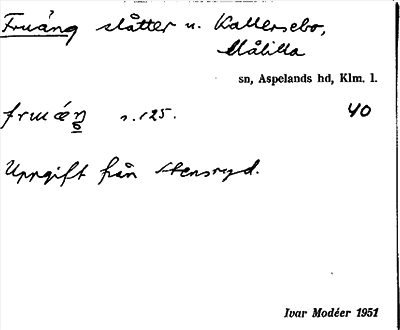 Fruäng slåtter u. Kallersebo,
Målilla
sn, Aspelands hd, Klm. l.
s. 125. 40
Uppgift från Stensryd.
Ivar Modéer 1951